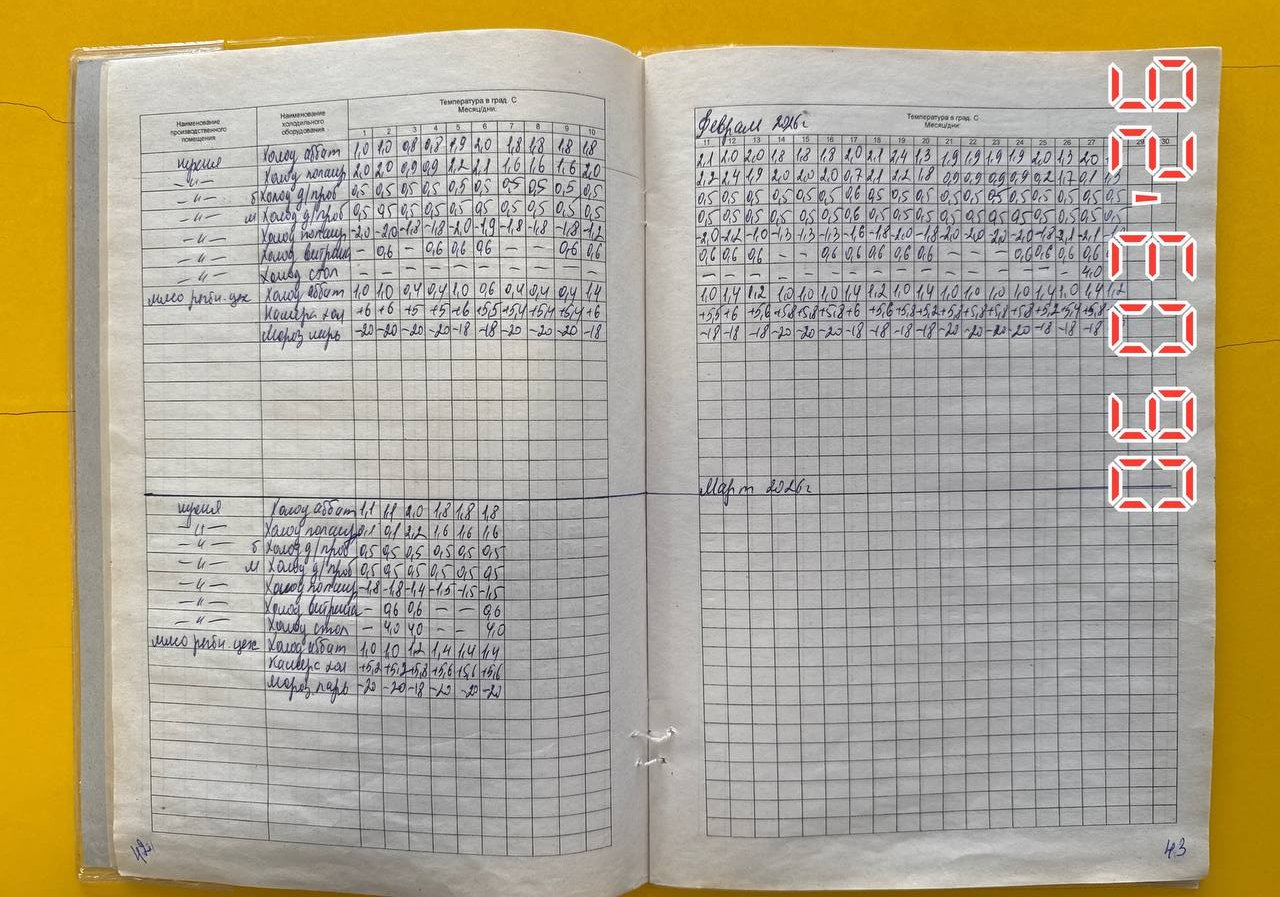 Наименование производственного помещения
Наименование холодильного оборудования
Температура в град. С
Месяц/дни:
1 2 3 4 5 6 7 8 9 10
кухня Холод аббат 1,0 1,0 0,8 0,8 1,9 2,0 1,8 1,8 1,8 1,8
–"– Холод 2,0 2,0 0,9 0,9 2,2 2,1 1,6 1,6 1,6 2,0
–"– б Холод д/проб 0,5 0,5 0,5 0,5 0,5 0,5 0,5 0,5 0,5 0,5
–"– м Холод д/проб 0,5 0,5 0,5 0,5 0,5 0,5 0,5 0,5 0,5 0,5
–"– Холод -2,0 -2,0 -1,8 -1,8 -2,0 -1,9 -1,8 -1,8 -1,8 -1,2
–"– Холод витрина – 0,6 – 0,6 0,6 0,6 – – 0,6 0,6
–"– Холод стол – – – – – – – – – –
мясо рыбн. цех Холод аббат 1,0 1,0 0,4 0,4 1,0 0,6 0,4 0,4 0,4 1,4
Камера хол +6 +6 +5 +5 +6 +5,5 +5,4 +5,4 +5,4 +6
Мороз ларь -20 -20 -20 -20 -18 -18 -20 -20 -20 -18
кухня Холод аббат 1,1 1,1 2,0 1,8 1,8 1,8
–"– Холод 0,1 0,1 2,2 1,6 1,6 1,6
–"– б Холод д/проб 0,5 0,5 0,5 0,5 0,5 0,5
–"– м Холод д/проб 0,5 0,5 0,5 0,5 0,5 0,5
–"– Холод -1,8 -1,8 -1,4 -1,5 -1,5 -1,5
–"– Холод витрина – 0,6 0,6 – – 0,6
–"– Холод стол – 4,0 4,0 – – 4,0
мясо рыбн. цех Холод аббат 1,0 1,0 1,2 1,4 1,4 1,4
Камера хол +5,2 +5,2 +5,8 +5,6 +5,6 +5,6
Мороз. ларь -20 -20 -18 -20 -20 -20
42
Февраль 2026г
Температура в град. С
Месяц/дни:
11 12 13 14 15 16 17 18 19 20 21 22 23 24 25 26 27 29 30
2,1 2,0 2,0 1,8 1,8 1,8 2,0 2,1 2,4 1,3 1,9 1,9 1,9 1,9 2,0 1,3 2,0
2,2 2,4 1,9 2,0 2,0 2,0 0,7 2,1 2,2 1,8 0,9 0,9 0,9 0,9 0,2 1,7 0,1
0,5 0,5 0,5 0,5 0,5 0,5 0,6 0,5 0,5 0,5 0,5 0,5 0,5 0,5 0,5 0,5 0,5 0,5
0,5 0,5 0,5 0,5 0,5 0,5 0,6 0,5 0,5 0,5 0,5 0,5 0,5 0,5 0,5 0,5 0,5 0,5
-2,0 -2,2 -1,0 -1,3 -1,3 -1,3 -1,6 -1,8 -2,0 -1,8 -2,0 -2,0 -2,0 -2,0 -1,8 -2,1 -2,1
0,6 0,6 0,6 – – 0,6 0,6 0,6 0,6 0,6 – – – 0,6 0,6 0,6 0,6
– – – – – – – – – – – – – – – – 4,0
1,0 1,4 1,2 1,0 1,0 1,0 1,4 1,2 1,0 1,4 1,0 1,0 1,0 1,0 1,4 1,0 1,4 1,2
+5,6 +6 +5,6 +5,8 +5,8 +5,8 +6 +5,6 +5,8 +5,2 +5,8 +5,8 +5,8 +5,8 +5,2 +5,4 +5,8
-18 -18 -18 -20 -20 -18 -18 -18 -18 -18 -20 -20 -20 -20 -18 -18 -18
Март 2026г
43
06.03.'26